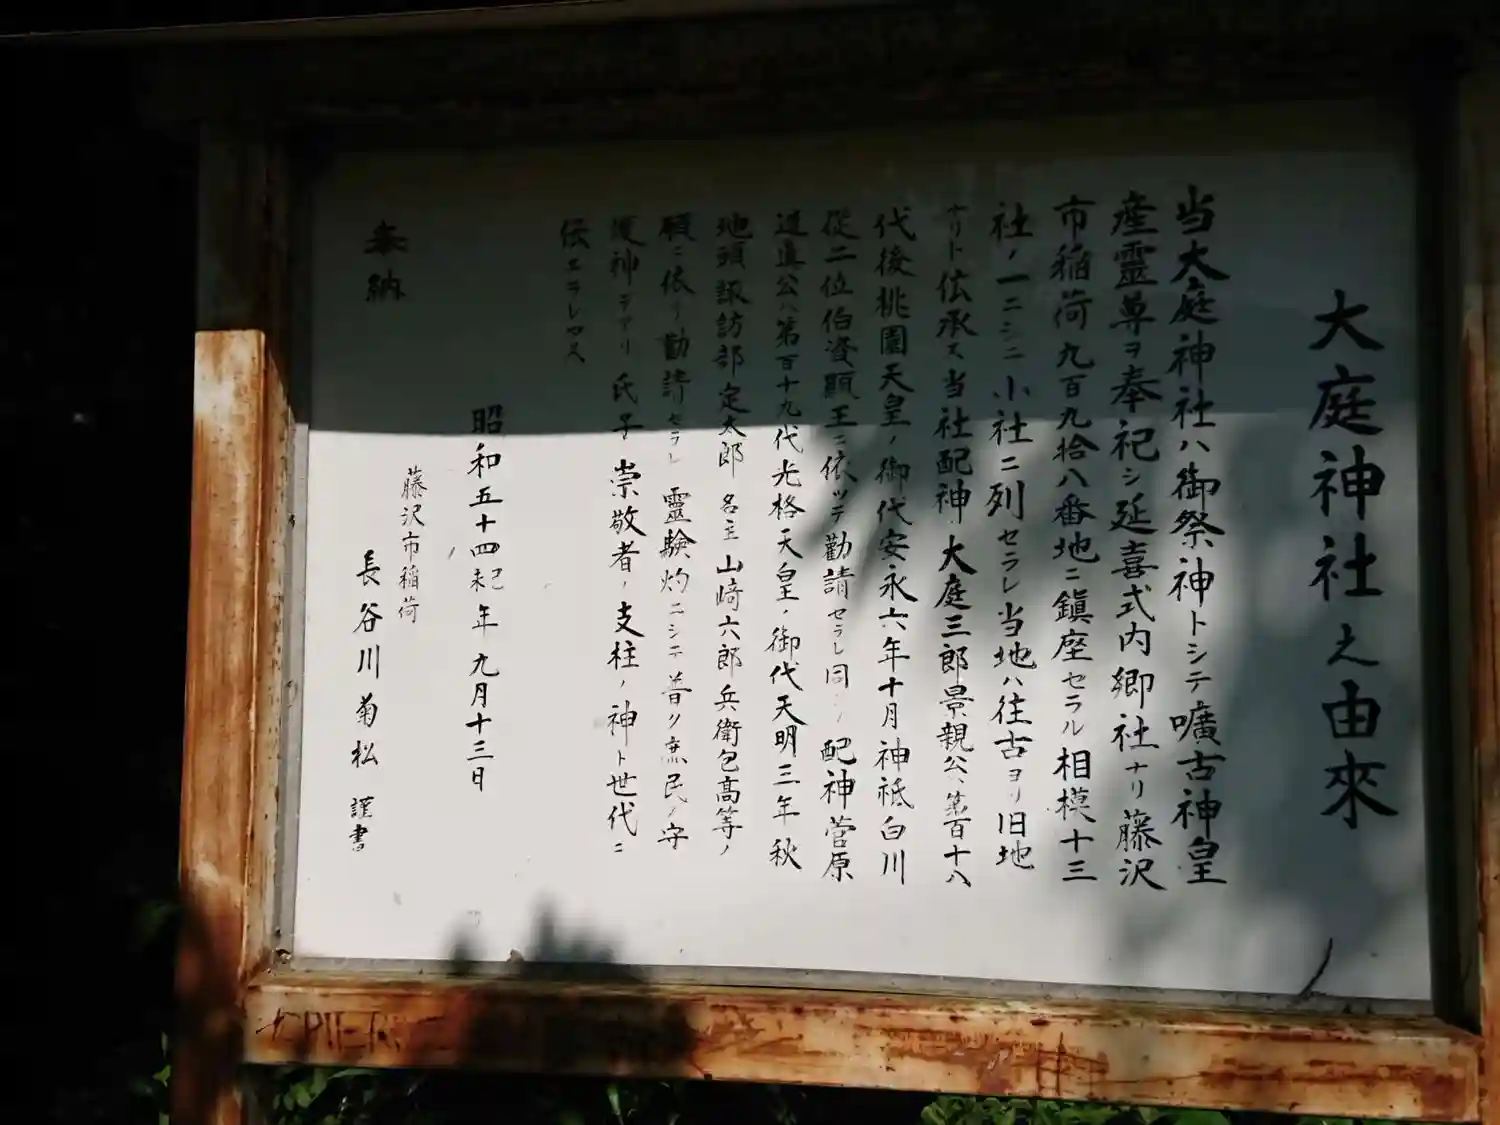 大庭神社之由來
当大庭神社ハ御祭神トシテ嚝古神皇
産靈尊ヲ奉祀シ延喜式内郷社ナリ藤沢
市稲荷九百九拾八番地ニ鎭座セラル相模十三
社ノ一ニシテ小社ニ列セラレ当地ハ往古ヨリ旧地
ナリト伝承ス当社配神大庭三郎景親公、第百十八
代後桃園天皇ノ御代安永六年十月神祇白川
從二位伯資顯王ニ依ッテ勸請セラレ同ジク配神菅原
道真公ハ第百十九代光格天皇ノ御代天明三年秋
地頭諏訪部定太郎名主山﨑六郎兵衛包高等ノ
願ニ依リ勸請セラレ靈験灼ニシテ普ク庶民ノ守
護神デアリ氏子崇敬者ノ支柱ノ神ト世代ニ
伝エラレマス
昭和五十四年九月十三日
藤沢市稲荷
奉納 長谷川菊松 謹書